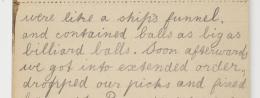 were like a ship's funnel,
and contained balls as big as
billiard balls. Soon afterwards
we got into extended order,
dropped our picks and fixed